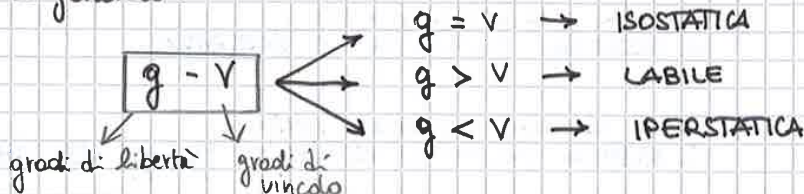 g = v → ISOSTATICA
g - v
g > v → LABILE
g < v → IPERSTATICA
gradi di libertà
gradi di
vincolo